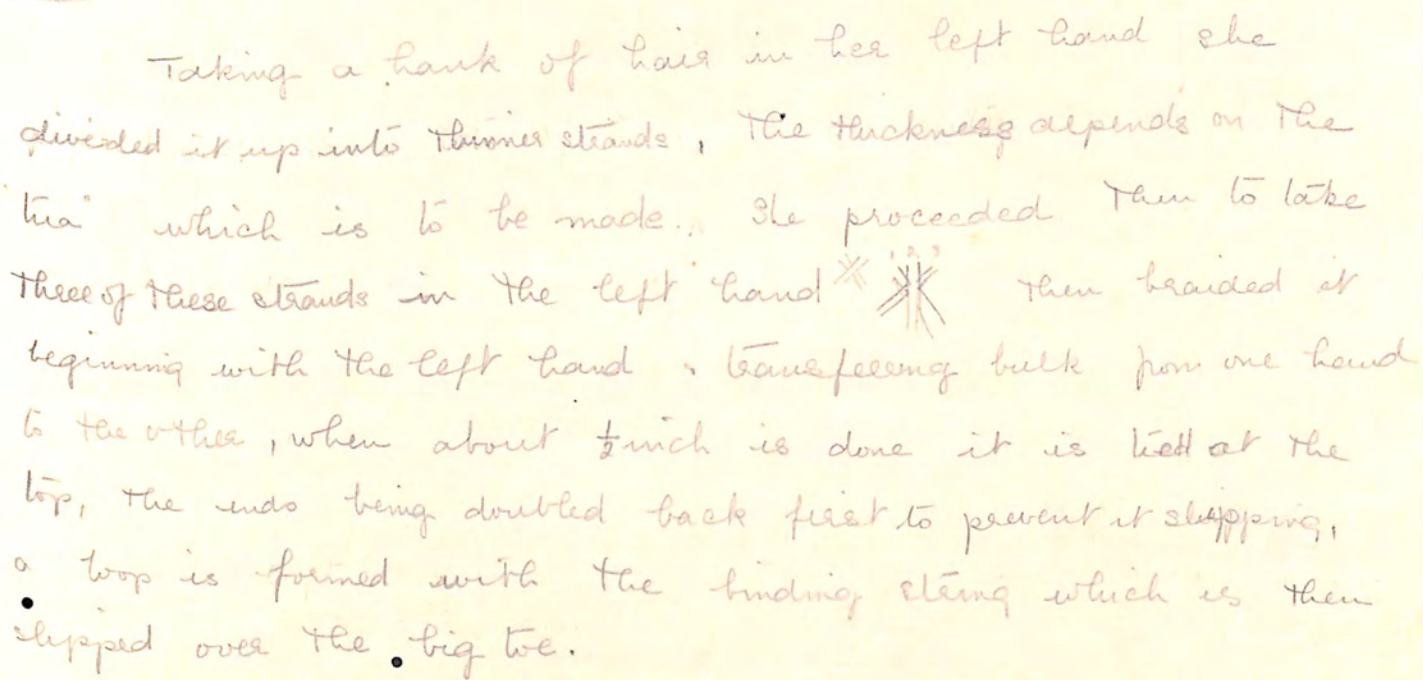 Taking a hank of hair in her left hand she
divided it up into thinner strands, the thickness depends on the
"tua" which is to be made. She proceeded then to take
three of these strands in the left hand 1 2 3 then braided it
beginning with the left hand & transferring bulk from one hand
to the other, when about ½ inch is done it is tied at the
top, the ends being doubled back first to prevent it slipping,
a loop is formed with the binding string which is then
slipped over the big toe.